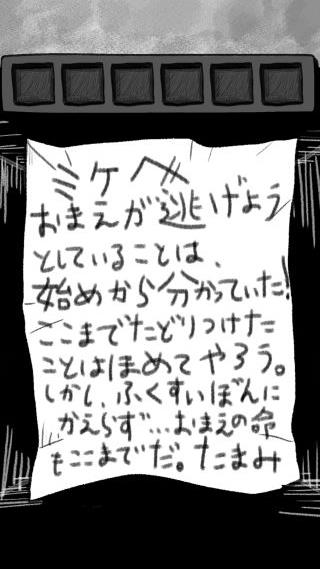 ミケへ
おまえが逃げよう
としていることは、
始めから分かっていた!
ここまでたどりつけた
ことはほめてやろう。
しかし、ふくすいぼんに
かえらず…おまえの命
もここまでだ。たまみ